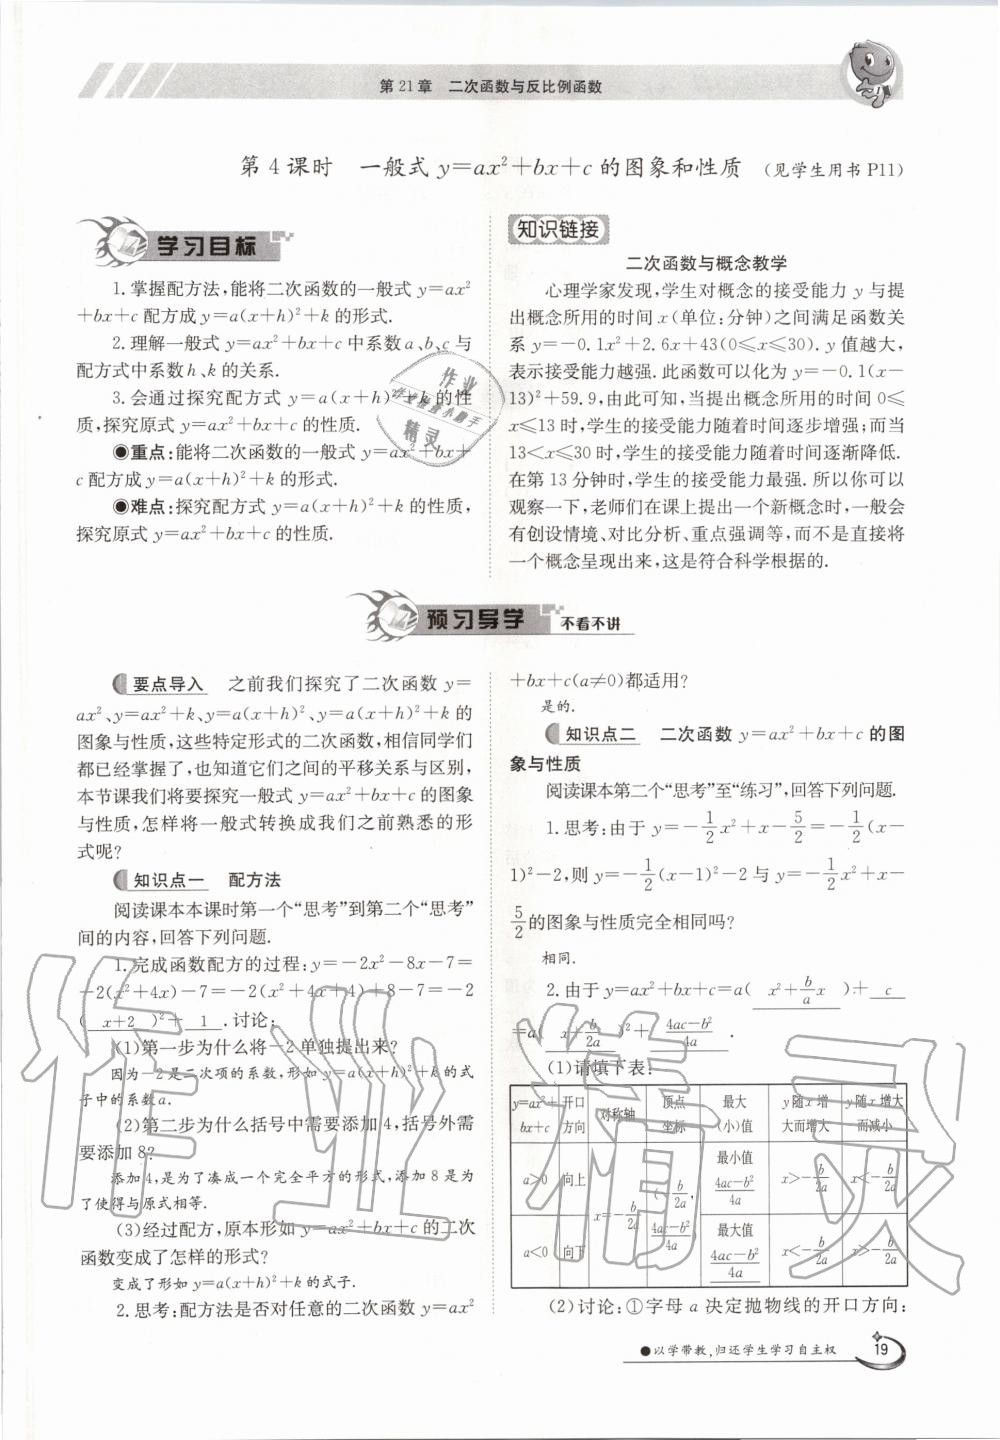 第21章 二次函数与反比例函数
第4课时 一般式y=ax²+bx+c的图象和性质 (见学生用书P11)
学习目标
1.掌握配方法,能将二次函数的一般式y=ax²
+bx+c配方成y=a(x+h)²+k的形式.
2.理解一般式y=ax²+bx+c中系数a、b、c与
配方式中系数h、k的关系.
3.会通过探究配方式y=a(x+h)²+k的性
质,探究原式y=ax²+bx+c的性质.
◉重点:能将二次函数的一般式y=ax²+bx+
c配方成y=a(x+h)²+k的形式.
◉难点:探究配方式y=a(x+h)²+k的性质,
探究原式y=ax²+bx+c的性质.
知识链接
二次函数与概念教学
心理学家发现,学生对概念的接受能力y与提
出概念所用的时间x(单位:分钟)之间满足函数关
系y=-0.1x²+2.6x+43(0≤x≤30).y值越大,
表示接受能力越强.此函数可以化为y=-0.1(x-
13)²+59.9,由此可知,当提出概念所用的时间0≤
x≤13时,学生的接受能力随着时间逐步增强;而当
13<x≤30时,学生的接受能力随着时间逐渐降低.
在第13分钟时,学生的接受能力最强.所以你可以
观察一下,老师们在课上提出一个新概念时,一般会
有创设情境、对比分析、重点强调等,而不是直接将
一个概念呈现出来,这是符合科学根据的.
预习导学 不看不讲
要点导入 之前我们探究了二次函数y=
ax²、y=ax²+k、y=a(x+h)²、y=a(x+h)²+k的
图象与性质,这些特定形式的二次函数,相信同学们
都已经掌握了,也知道它们之间的平移关系与区别,
本节课我们将要探究一般式y=ax²+bx+c的图象
与性质,怎样将一般式转换成我们之前熟悉的形
式呢?
知识点一 配方法
阅读课本本课时第一个“思考”到第二个“思考”
间的内容,回答下列问题.
1.完成函数配方的过程:y=-2x²-8x-7=
-2(x²+4x)-7=-2(x²+4x+4)+8-7=-2
( x+2 )²+ 1 .讨论:
(1)第一步为什么将-2单独提出来?
因为-2是二次项的系数,形如y=a(x+h)²+k的式
子中的系数a.
(2)第二步为什么括号中需要添加4,括号外需
要添加8?
添加4,是为了凑成一个完全平方的形式,添加8是为
了使得与原式相等.
(3)经过配方,原本形如y=ax²+bx+c的二次
函数变成了怎样的形式?
变成了形如y=a(x+h)²+k的式子.
2.思考:配方法是否对任意的二次函数y=ax²
+bx+c(a≠0)都适用?
是的.
知识点二 二次函数y=ax²+bx+c的图
象与性质
阅读课本第二个“思考”至“练习”,回答下列问题.
1.思考:由于y=-1/2x²+x-5/2=-1/2(x-
1)²-2,则y=-1/2(x-1)²-2与y=-1/2x²+x-
5/2的图象与性质完全相同吗?
相同.
2.由于y=ax²+bx+c=a( x²+b/a x )+ c
=a( x+b/2a )²+ 4ac-b²/4a .
(1)请填下表:
y=ax²+bx+c 开口方向 对称轴 顶点坐标 最大(小)值 y随x增大而增大 y随x增大而减小
a>0 向上 x=-b/2a (-b/2a, 4ac-b²/4a) 最小值 4ac-b²/4a x>-b/2a x<-b/2a
a<0 向下 最大值 4ac-b²/4a x<-b/2a x>-b/2a
(2)讨论:①字母a决定抛物线的开口方向:
●以学带教,归还学生学习自主权
19
作业
精灵
作业精灵